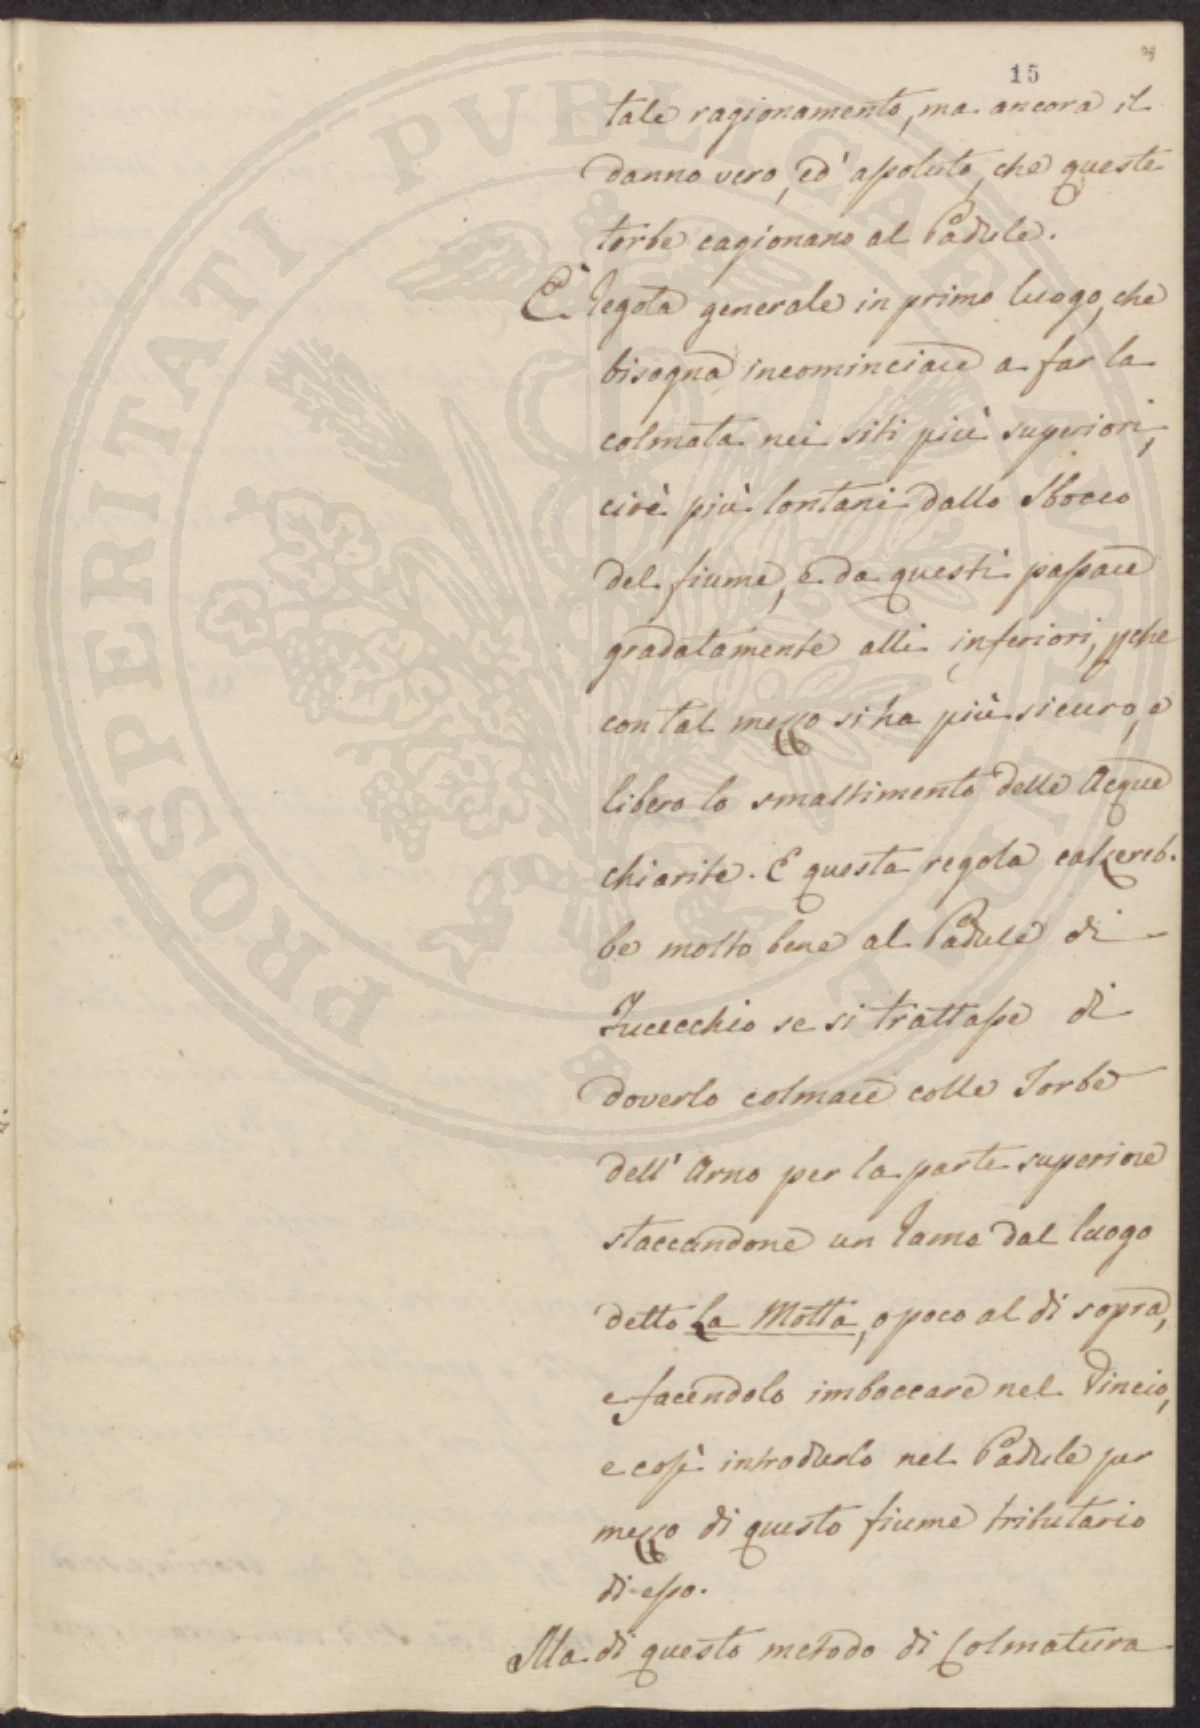 15
tale ragionamento, ma ancora il
danno vero, ed' assoluto, che queste
torbe cagionano al Padule.
È regola generale in primo luogo, che
bisogna incominciare a far la
colmata nei siti più superiori,
cioè più lontani dallo Sbocco
del fiume, e da questi passare
gradatamente alli inferiori, pche
con tal mezzo si ha più sicuro, e
libero lo smaltimento delle Acque
chiarite. E questa regola calzereb-
be molto bene al Padule di
Fucecchio se si trattasse di
doverlo colmare colle Torbe
dell' Arno per la parte superiore
staccandone un ramo dal luogo
detto La Motta, o poco al di sopra,
e facendolo imboccare nel Vincio,
e così introdurlo nel Padule per
mezzo di questo fiume tributario
di esso.
Ma di questo metodo di Colmatura
PROSPERITATI PVBLICAE AVGENDAE